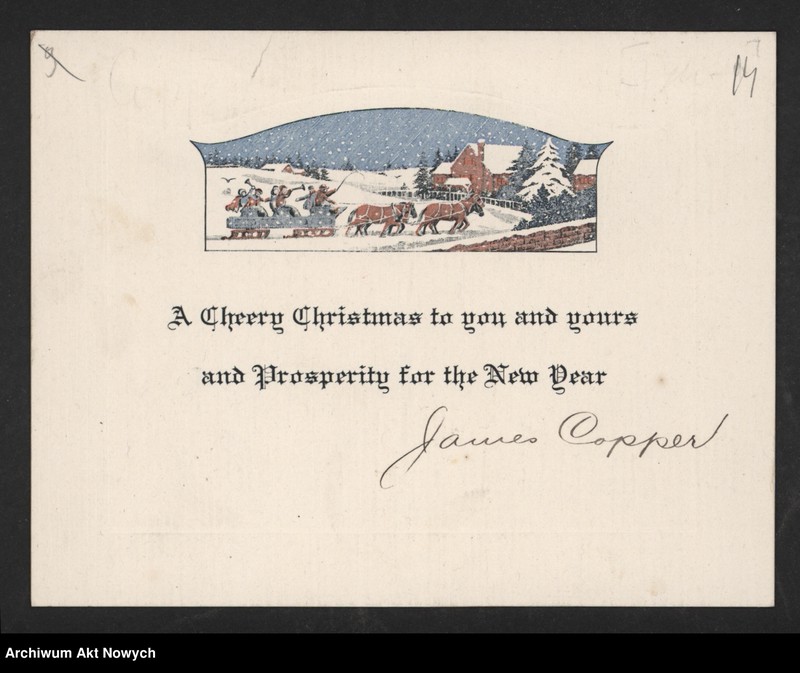 9
14
A Cheery Christmas to you and yours
and Prosperity for the New Year
James Copper
Archiwum Akt Nowych